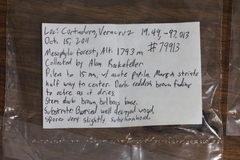 Loc: Coatepec, Veracruz 19.49, -97.013
Oct. 15, 2011 #79913
Mesophilo forest, Alt: 1793m
Collected by Alan Rockefeller
Pileus to 15 mm, w/ acute papilla, Margin striate
half way to center. Dark reddish brown fading
to ochre as it dries.
Stem dark brown bulbous base.
Substrate: Buried well decayed wood.
Spores very slightly subrhomboid.